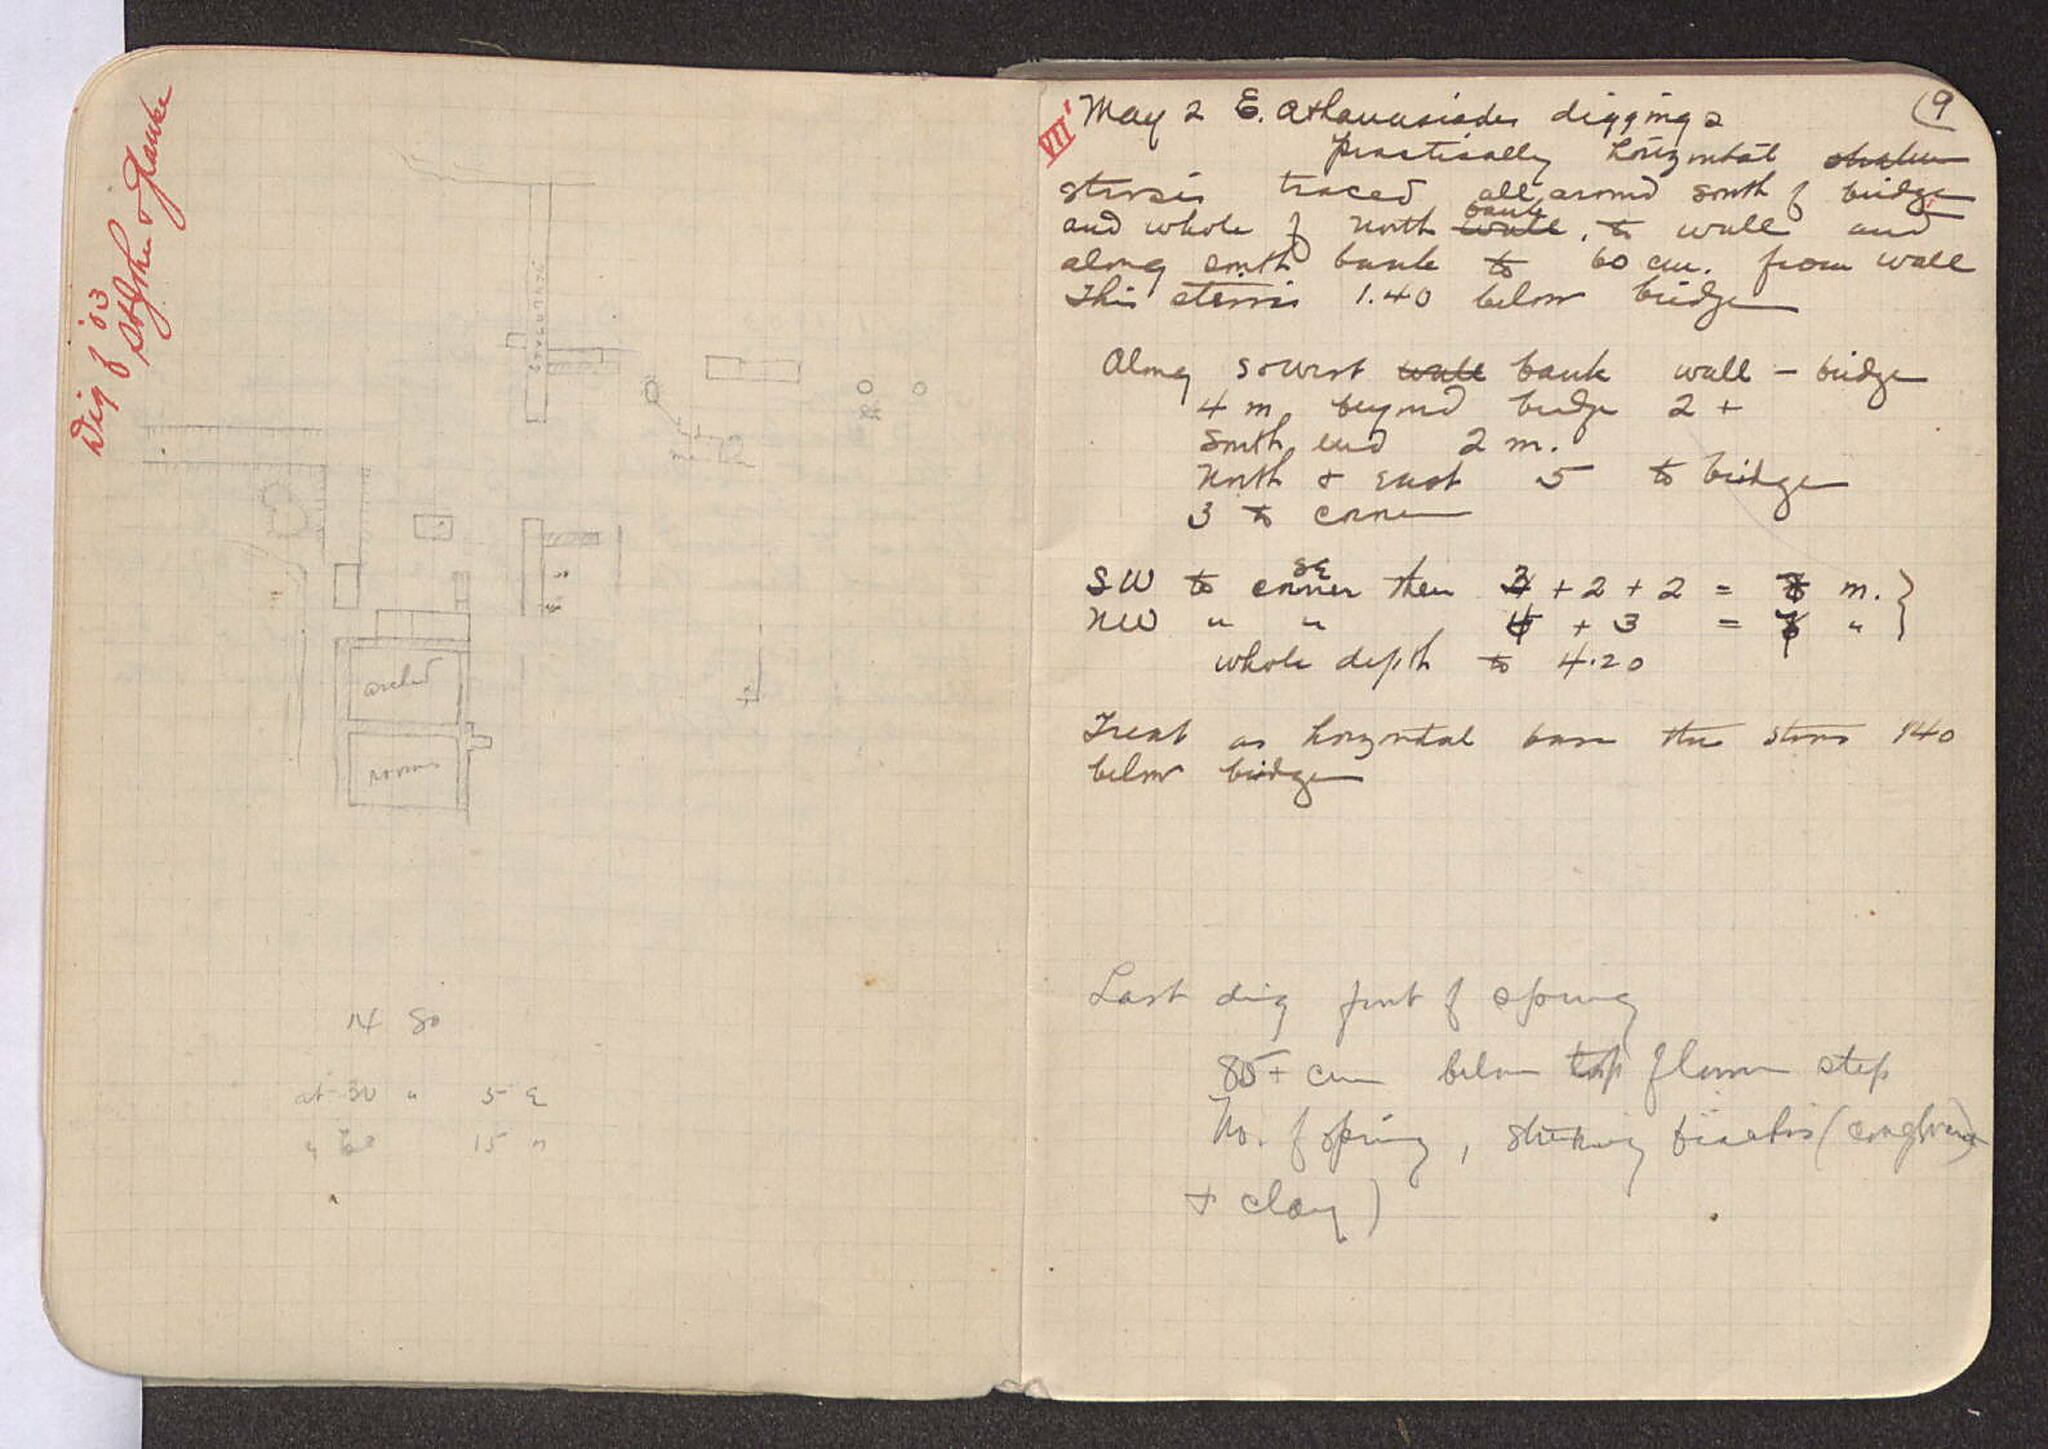 Dig of '03
So of
STYLOBATE
arched
rooms
14 80
at 30 " 5 E
" 60 15 "
VII'
9
May 2 E. Athanasiades digging
Practically horizontal
strosis traced all around south of bridge
and whole of north wall bank, to wall and
along south bank to 60 cm. from wall
This strosis 1.40 below bridge
Along wall bank wall – bridge
4 m beyond bridge 2 +
South end 2 m.
North & East 5 to bridge
3 to corner
SW to SE corner then + 2 + 2 = m. }
NW " " + 3 = " }
whole depth to 4.20
Treat as horizontal base this 140
below bridge
Last dig front of spring
85+ cm below top of lower step
No. of spring, (
+ clay)